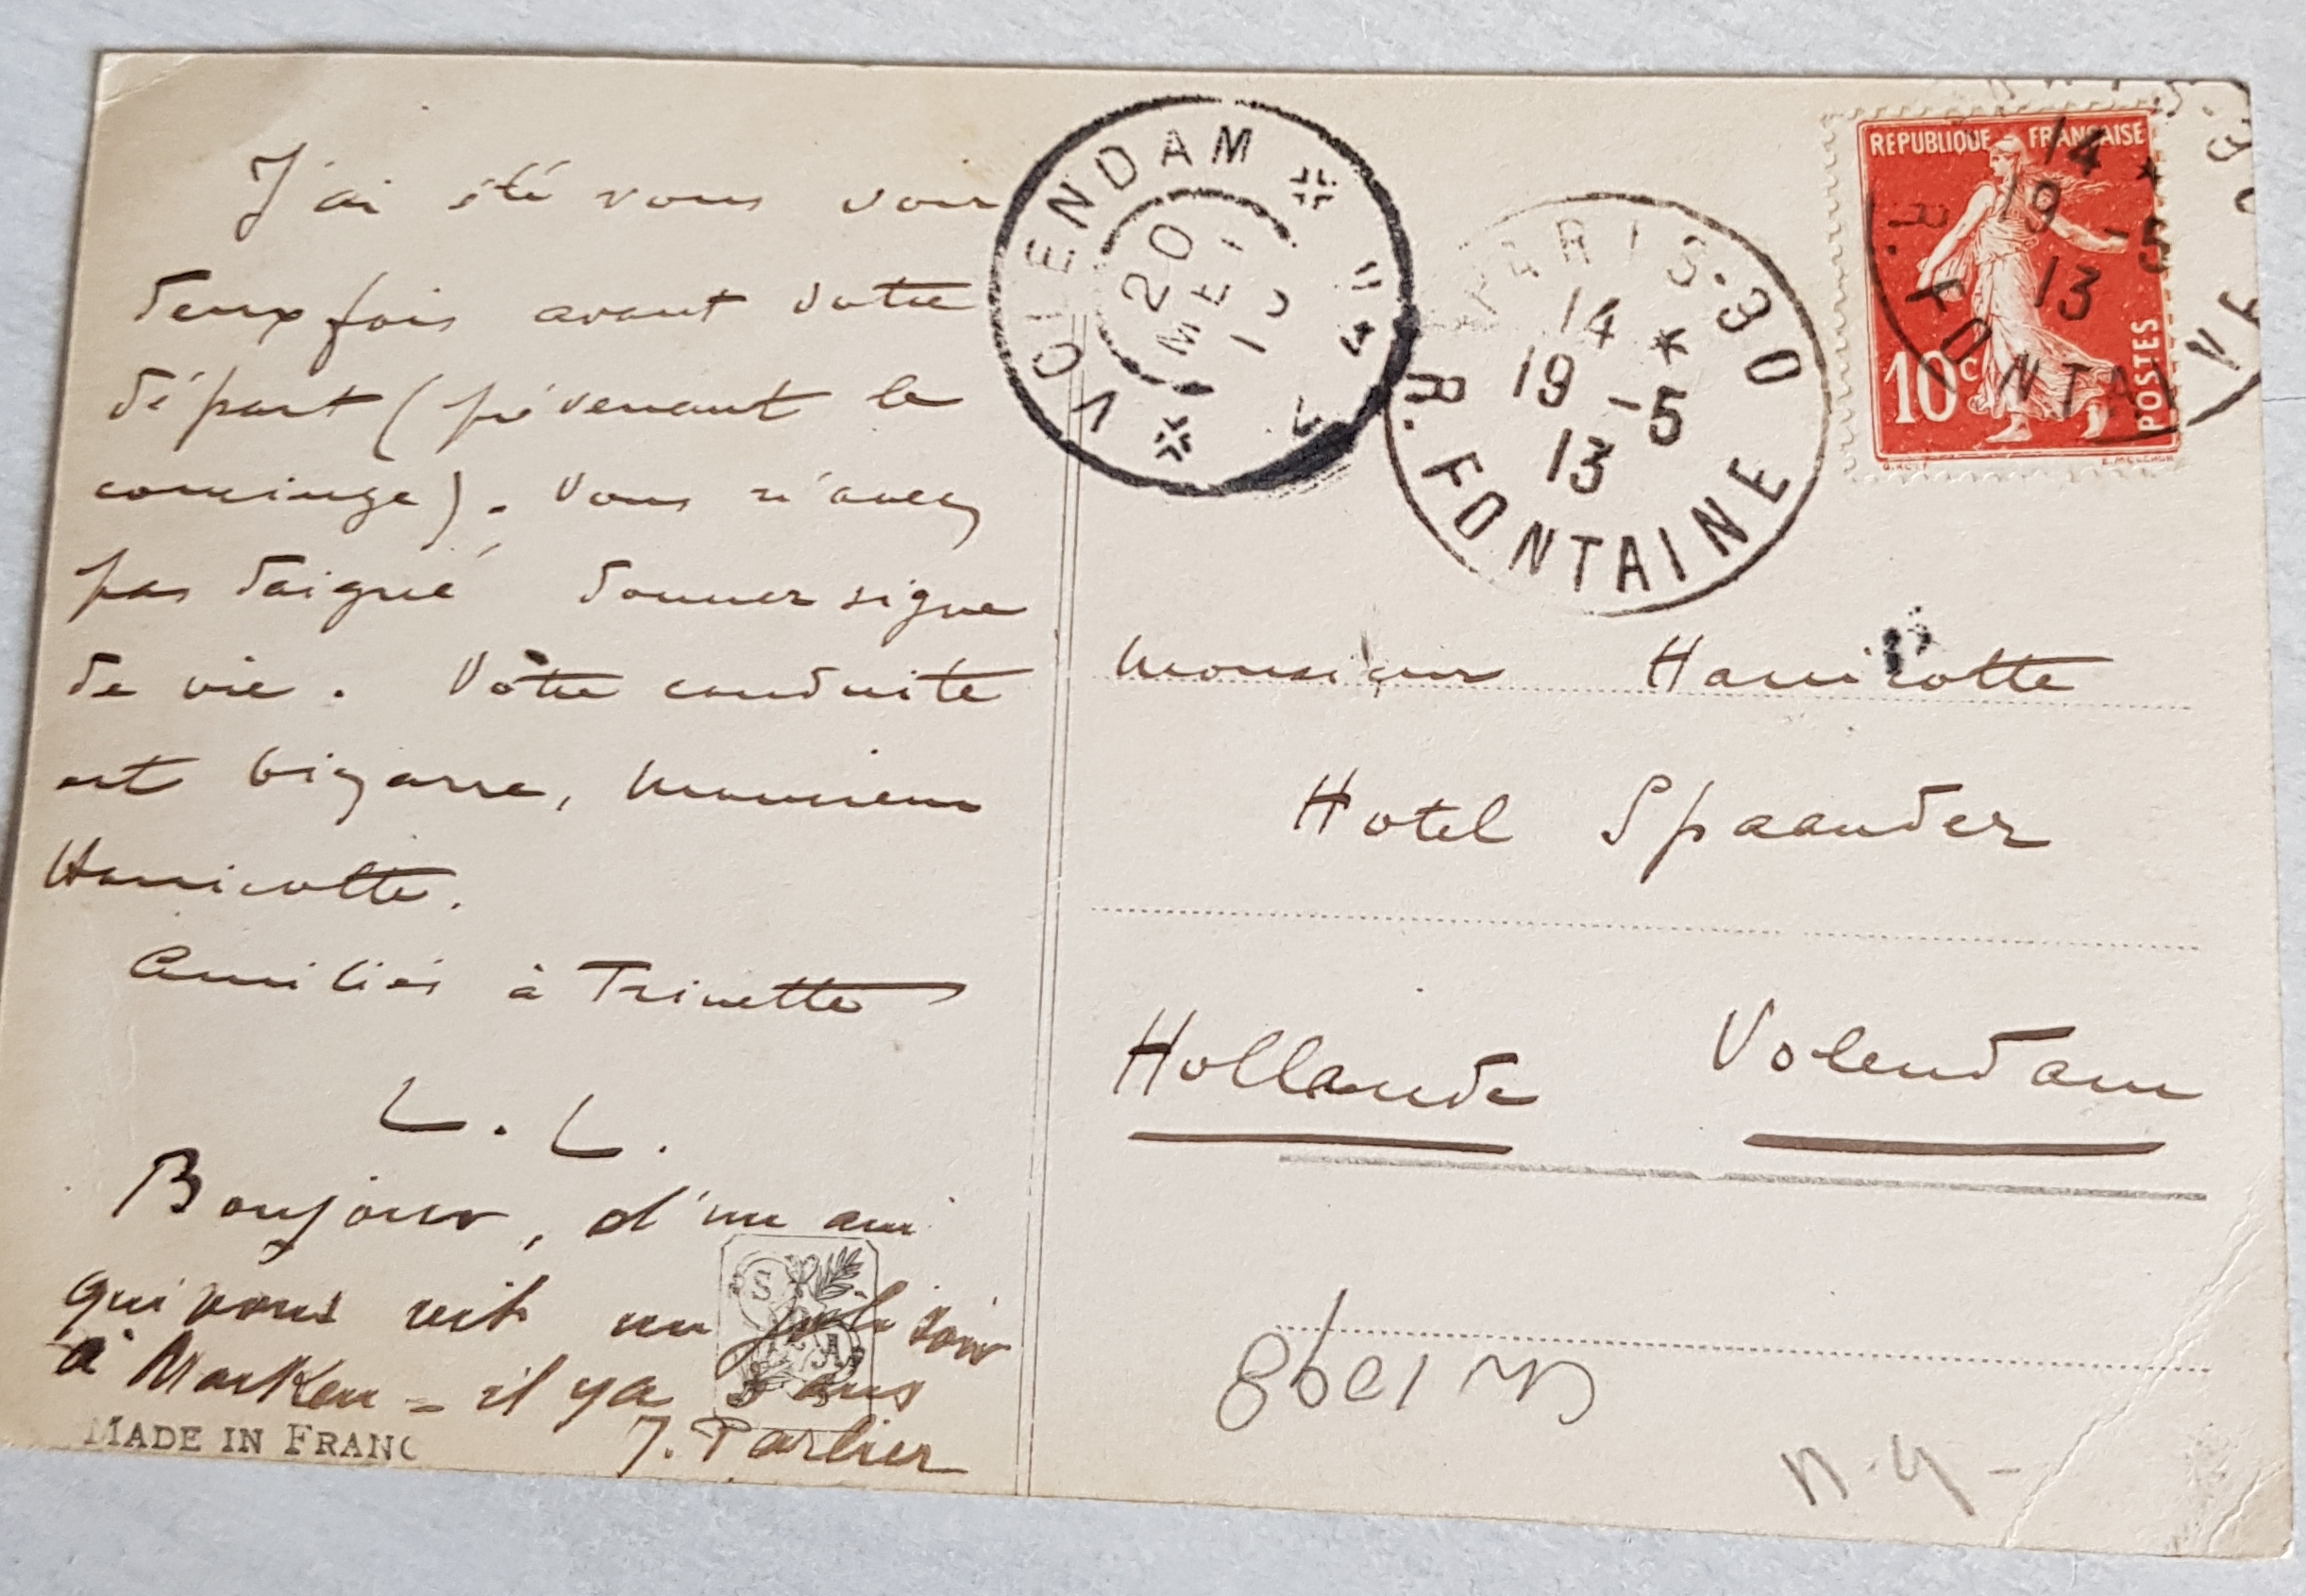 J'ai été vous voir
deux fois avant votre
départ (prévenant le
concierge). Vous n'avez
pas daigné donner signe
de vie. Vôtre conduite
est bizarre, Monsieur
Hanicotte.
Amitiés à Trinette
L. L.
Bonjour, d'un ami
qui vous vit un joli soir
à Marken = il y a 3 ans
J. Parlier
MADE IN FRANC
VOLENDAM
20
MEI
PARIS·30
14 *
19 -5
13
R. FONTAINE
REPUBLIQUE FRANÇAISE
10c
POSTES
14 *
19 -5
13
R. FONTAI
Monsieur Hanicotte
Hotel Spaander
Hollande Volendam